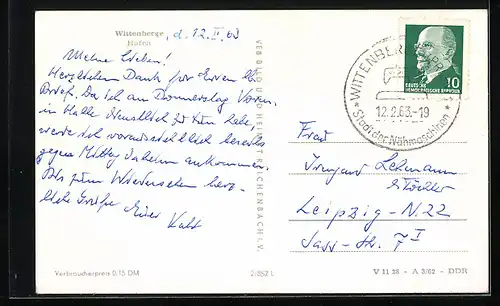 Wittenberge, d. 12.II.63
Hafen
Meine Lieben!
Herzlichen Dank für Euren lb.
Brief. Da ich am Donnerstag Vorm.
in Halle dienstlich zu tun habe,
werde ich voraussichtlich bereits
gegen Mittag daheim ankommen.
Bis zum Wiedersehen herz-
liche Grüße Euer Kurt
Verbraucherpreis 0,15 DM
VEB BILD UND HEIMAT REICHENBACH I. V.
WITTENBERGE
* Stadt der Nähmaschinen *
12.2.63-19
10
DEUTSCHE
DEMOKRATISCHE REPUBLIK
Frau
Irmgard Lehmann
Leipzig-N. 22
V 11 28 - A 3/62 - DDR